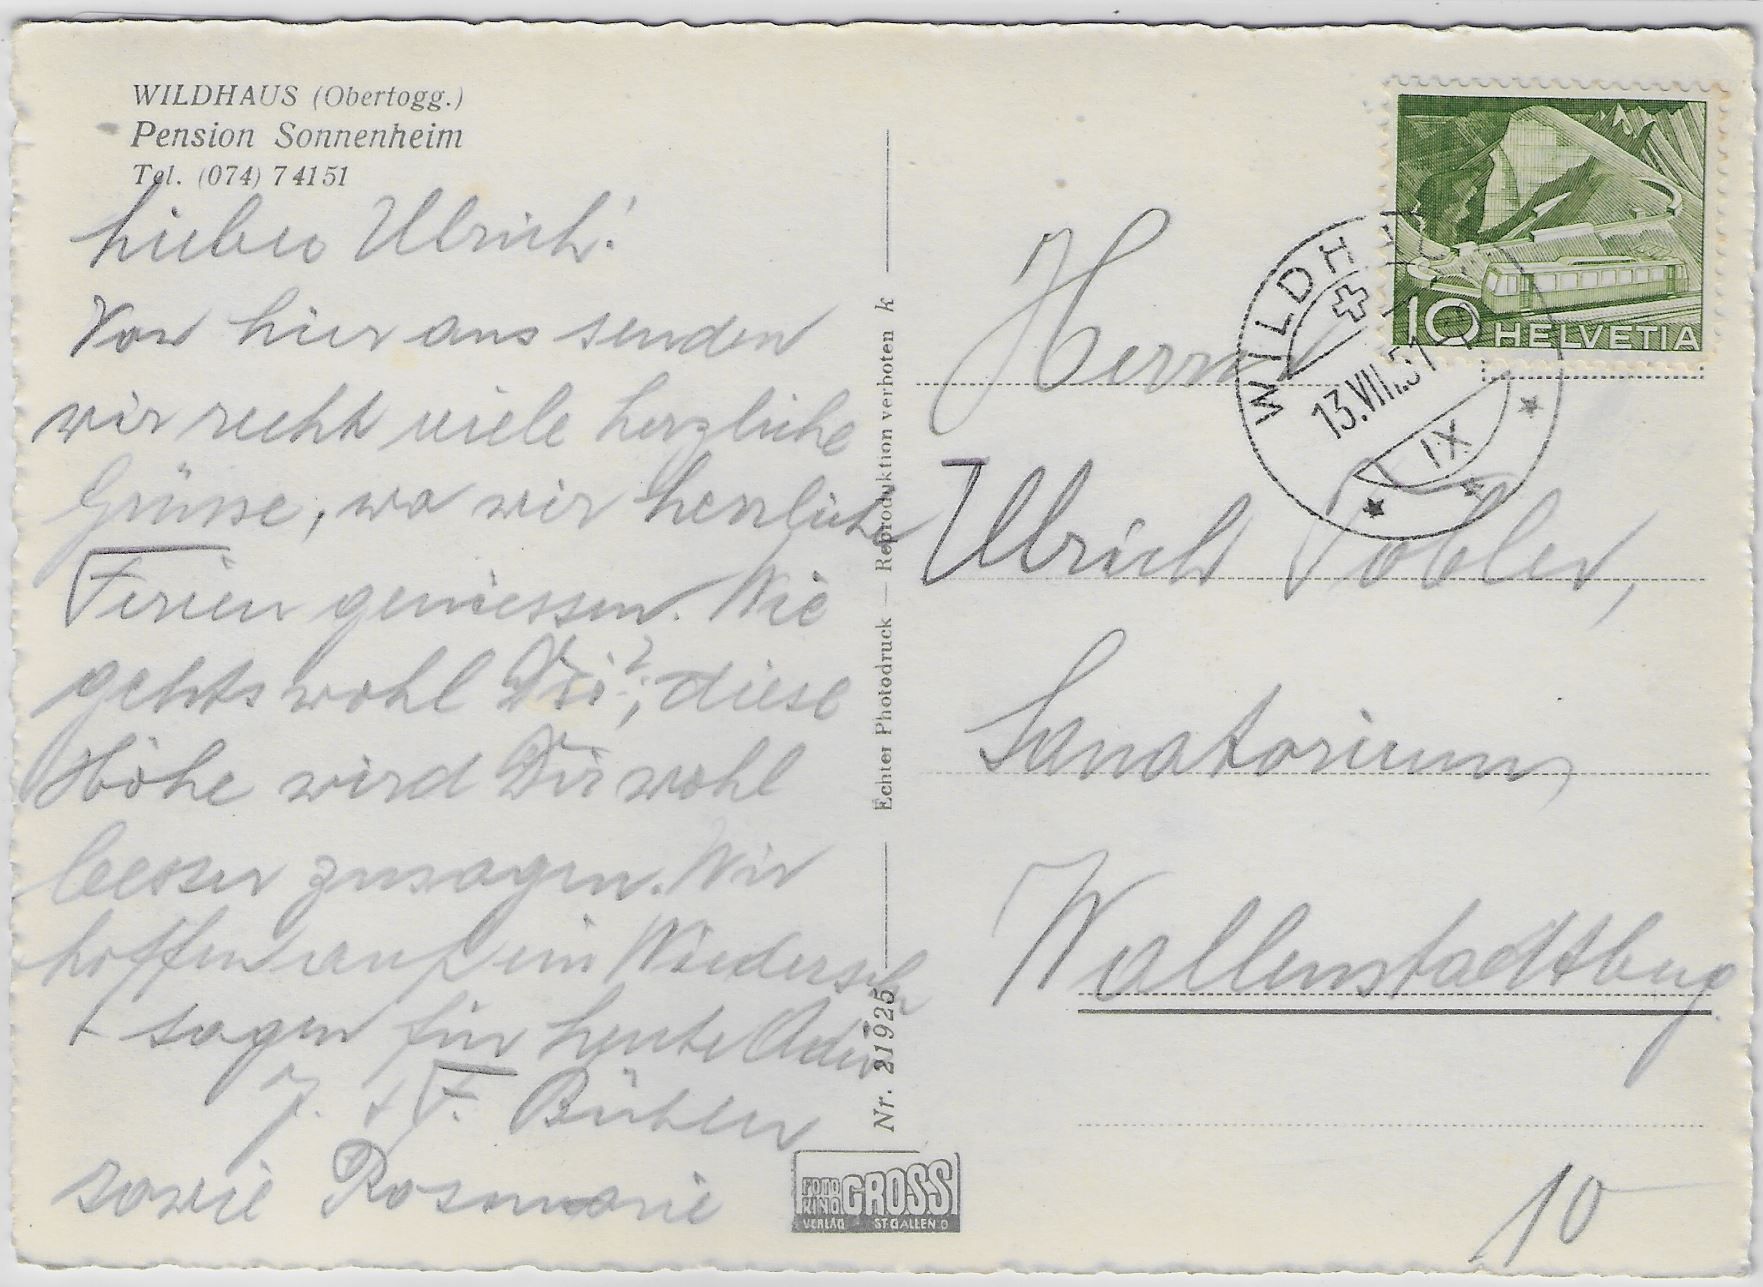 WILDHAUS (Obertogg.)
Pension Sonnenheim
Tel. (074) 74151
Lieber Ulrich!
Von hier aus senden
wir recht viele herzliche
Grüsse, wo wir herrliche
Ferien geniessen. Wie
gehts wohl Dir?, diese
Höhe wird Dir wohl
besser zusagen. Wir
hoffen auf ein Wiedersehn
+ sagen für heute Adio
J. + F. Bühler
sowie Rosmarie
Echter Photodruck — Reproduktion verboten k
Nr. 21925
FOTO
KINO GROSS
VERLAG ST GALLEN O
10 HELVETIA
WILDHAUS
13.VIII.51
IX
Herrn
Ulrich Tobler,
Sanatorium
Wallenstadtberg
10